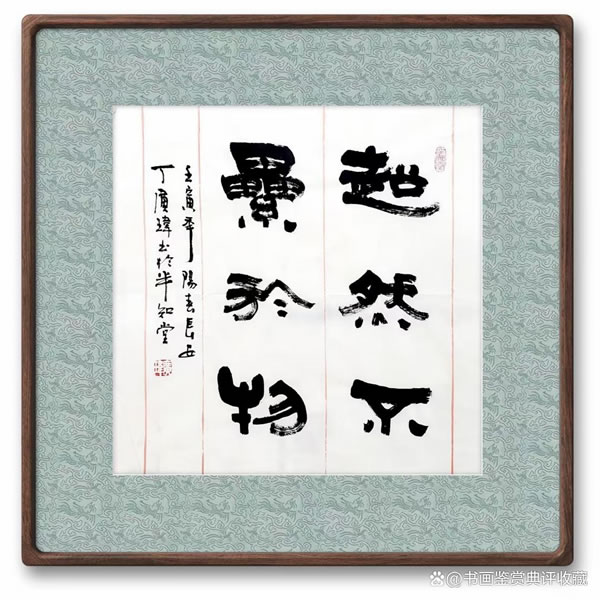 超然不
累於物
壬寅年陽春長安
丁廣瑋书於半知堂
书画鉴赏典评收藏